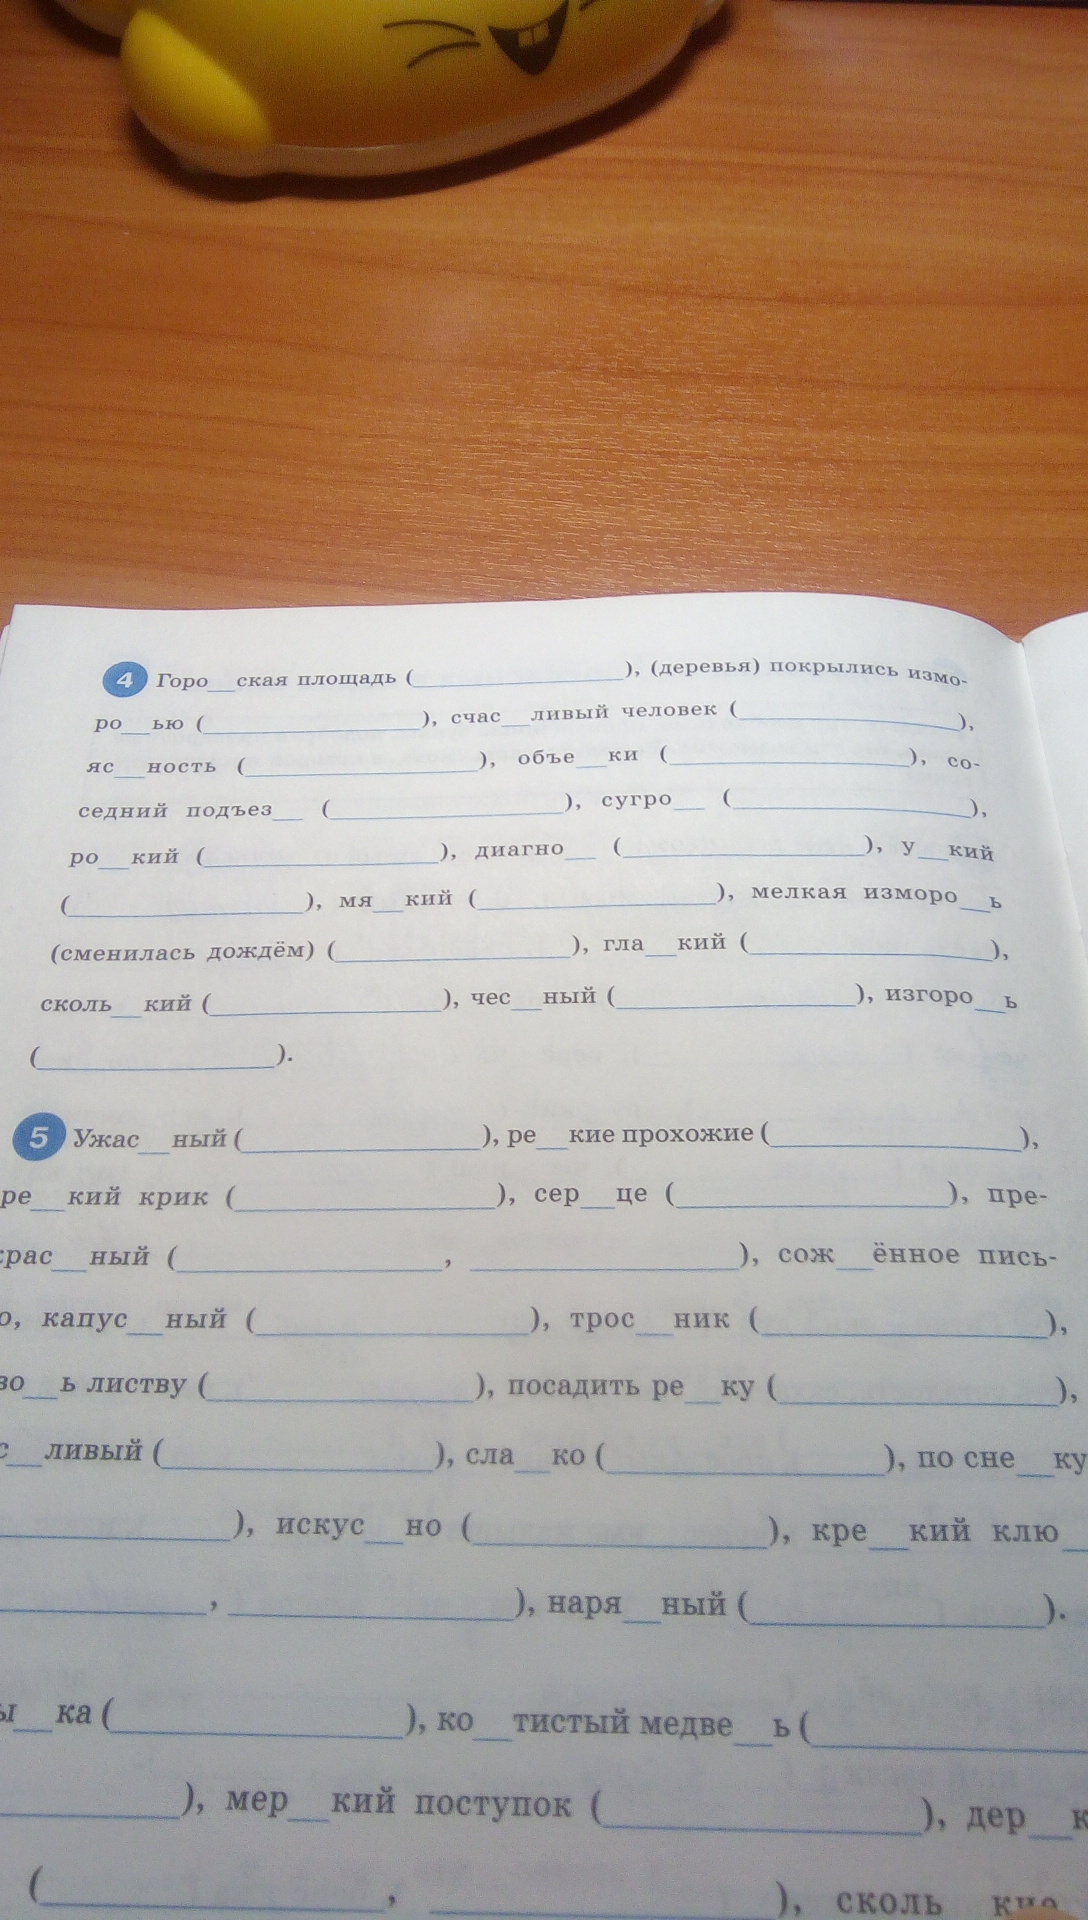 4 Горо__ская площадь (__________), (деревья) покрылись измо-
ро__ью (__________), счас__ливый человек (__________),
яс__ность (__________), объе__ки (__________), со-
седний подъез__ (__________), сугро__ (__________),
ро__кий (__________), диагно__ (__________), у__кий
(__________), мя__кий (__________), мелкая изморо__ь
(сменилась дождём) (__________), гла__кий (__________),
сколь__кий (__________), чес__ный (__________), изгоро__ь
(__________).
5 Ужас__ный (__________), ре__кие прохожие (__________),
ре__кий крик (__________), сер__це (__________), пре-
крас__ный (__________, __________), сож__ённое пись-
о, капус__ный (__________), трос__ник (__________),
во__ь листву (__________), посадить ре__ку (__________),
с__ливый (__________), сла__ко (__________), по сне__ку
__________), искус__но (__________), кре__кий клю__
__________, __________), наря__ный (__________).
ы__ка (__________), ко__тистый медве__ь (__________
__________), мер__кий поступок (__________), дер__к
(__________, __________), сколь кие